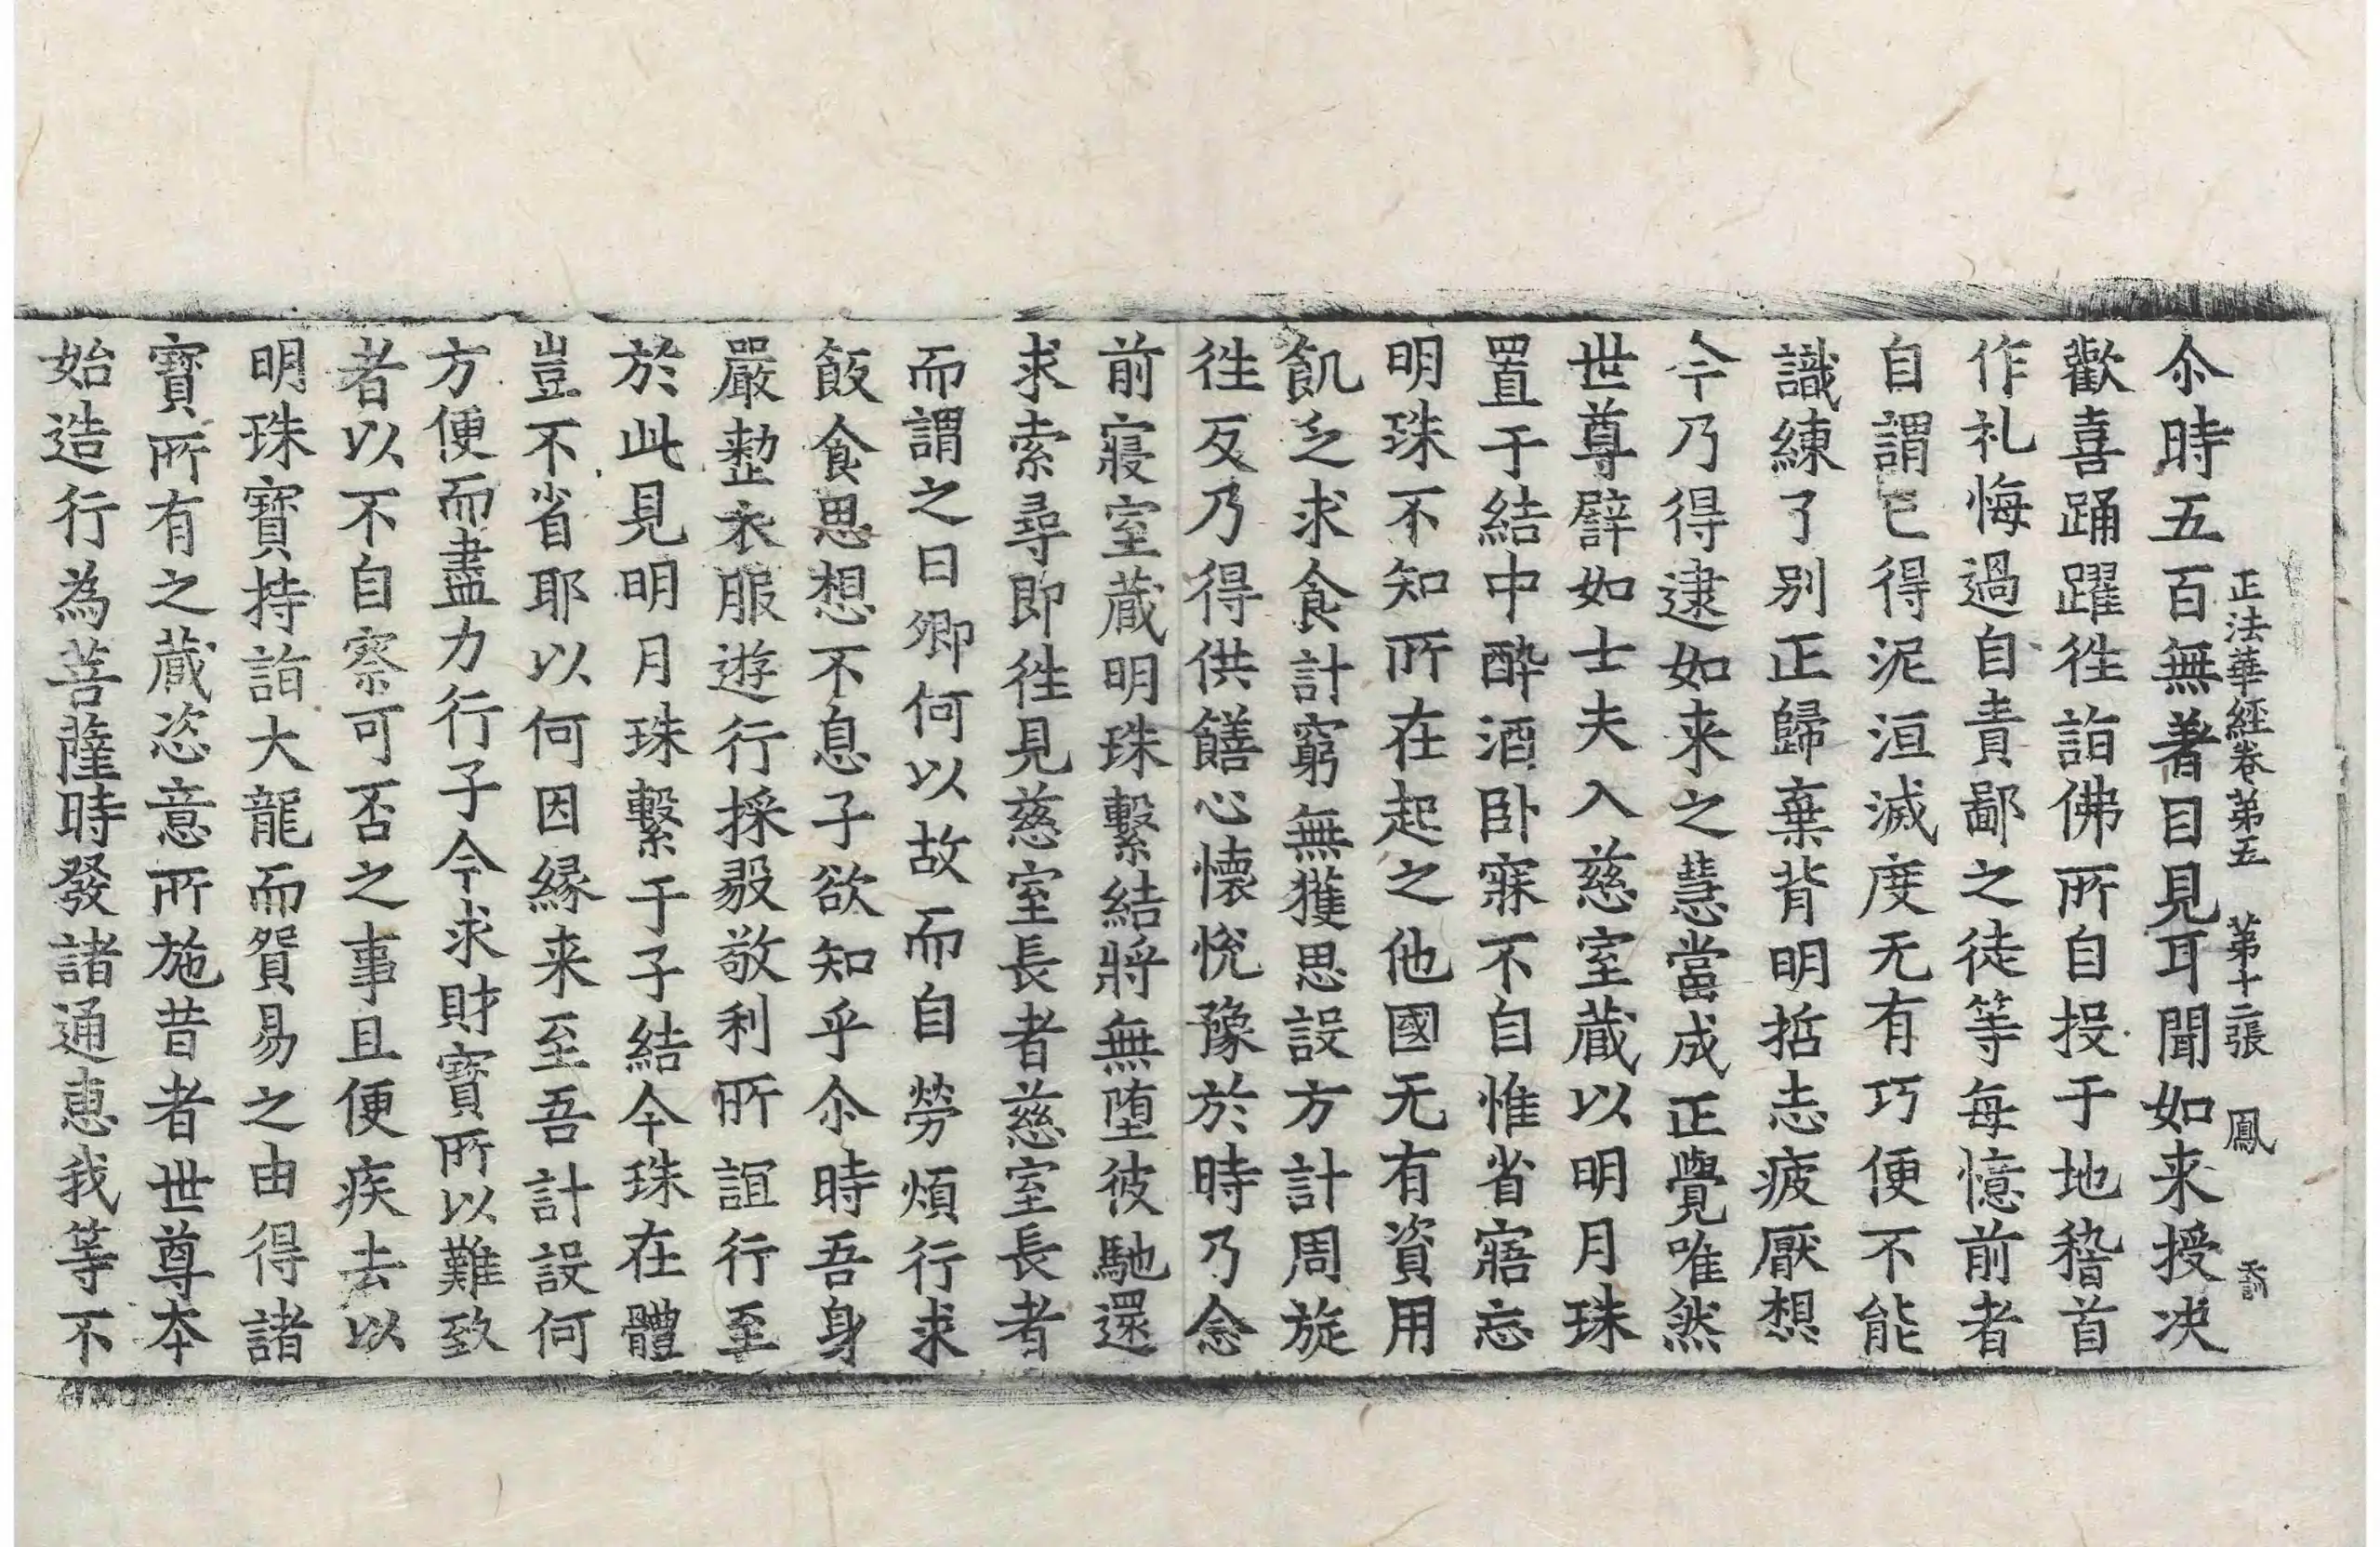 正法華經卷第五　第十二張　鳳
尒時五百無著目見耳聞如来授决
歡喜踊躍徃詣佛所自投于地稽首
作礼悔過自責鄙之徒等每憶前者
自謂已得泥洹滅度无有巧便不能
識練了別正歸棄背明哲志疲厭想
今乃得逮如来之慧當成正覺唯然
世尊譬如士夫入慈室藏以明月珠
置于結中酔酒卧寐不自惟省寤忘
明珠不知所在起之他國无有資用
飢乏求食計窮無獲思設方計周旋
徃反乃得供饍心懷恱豫於時乃念
前寢室藏明珠繫結將無堕彼馳還
求索尋即徃見慈室長者慈室長者
而謂之曰卿何以故而自勞煩行求
飯食思想不息子欲知乎尒時吾身
嚴整衣服遊行採毅敬利所誼行至
於此見明月珠繫于子結今珠在體
豈不省耶以何因緣来至吾計設何
方便而盡力行子今求財寳所以難致
者以不自察可否之事且便疾去以
明珠寳持詣大龍而貿易之由得諸
寳所有之藏恣意所施昔者世尊本
始造行為菩薩時發諸通惠我等不